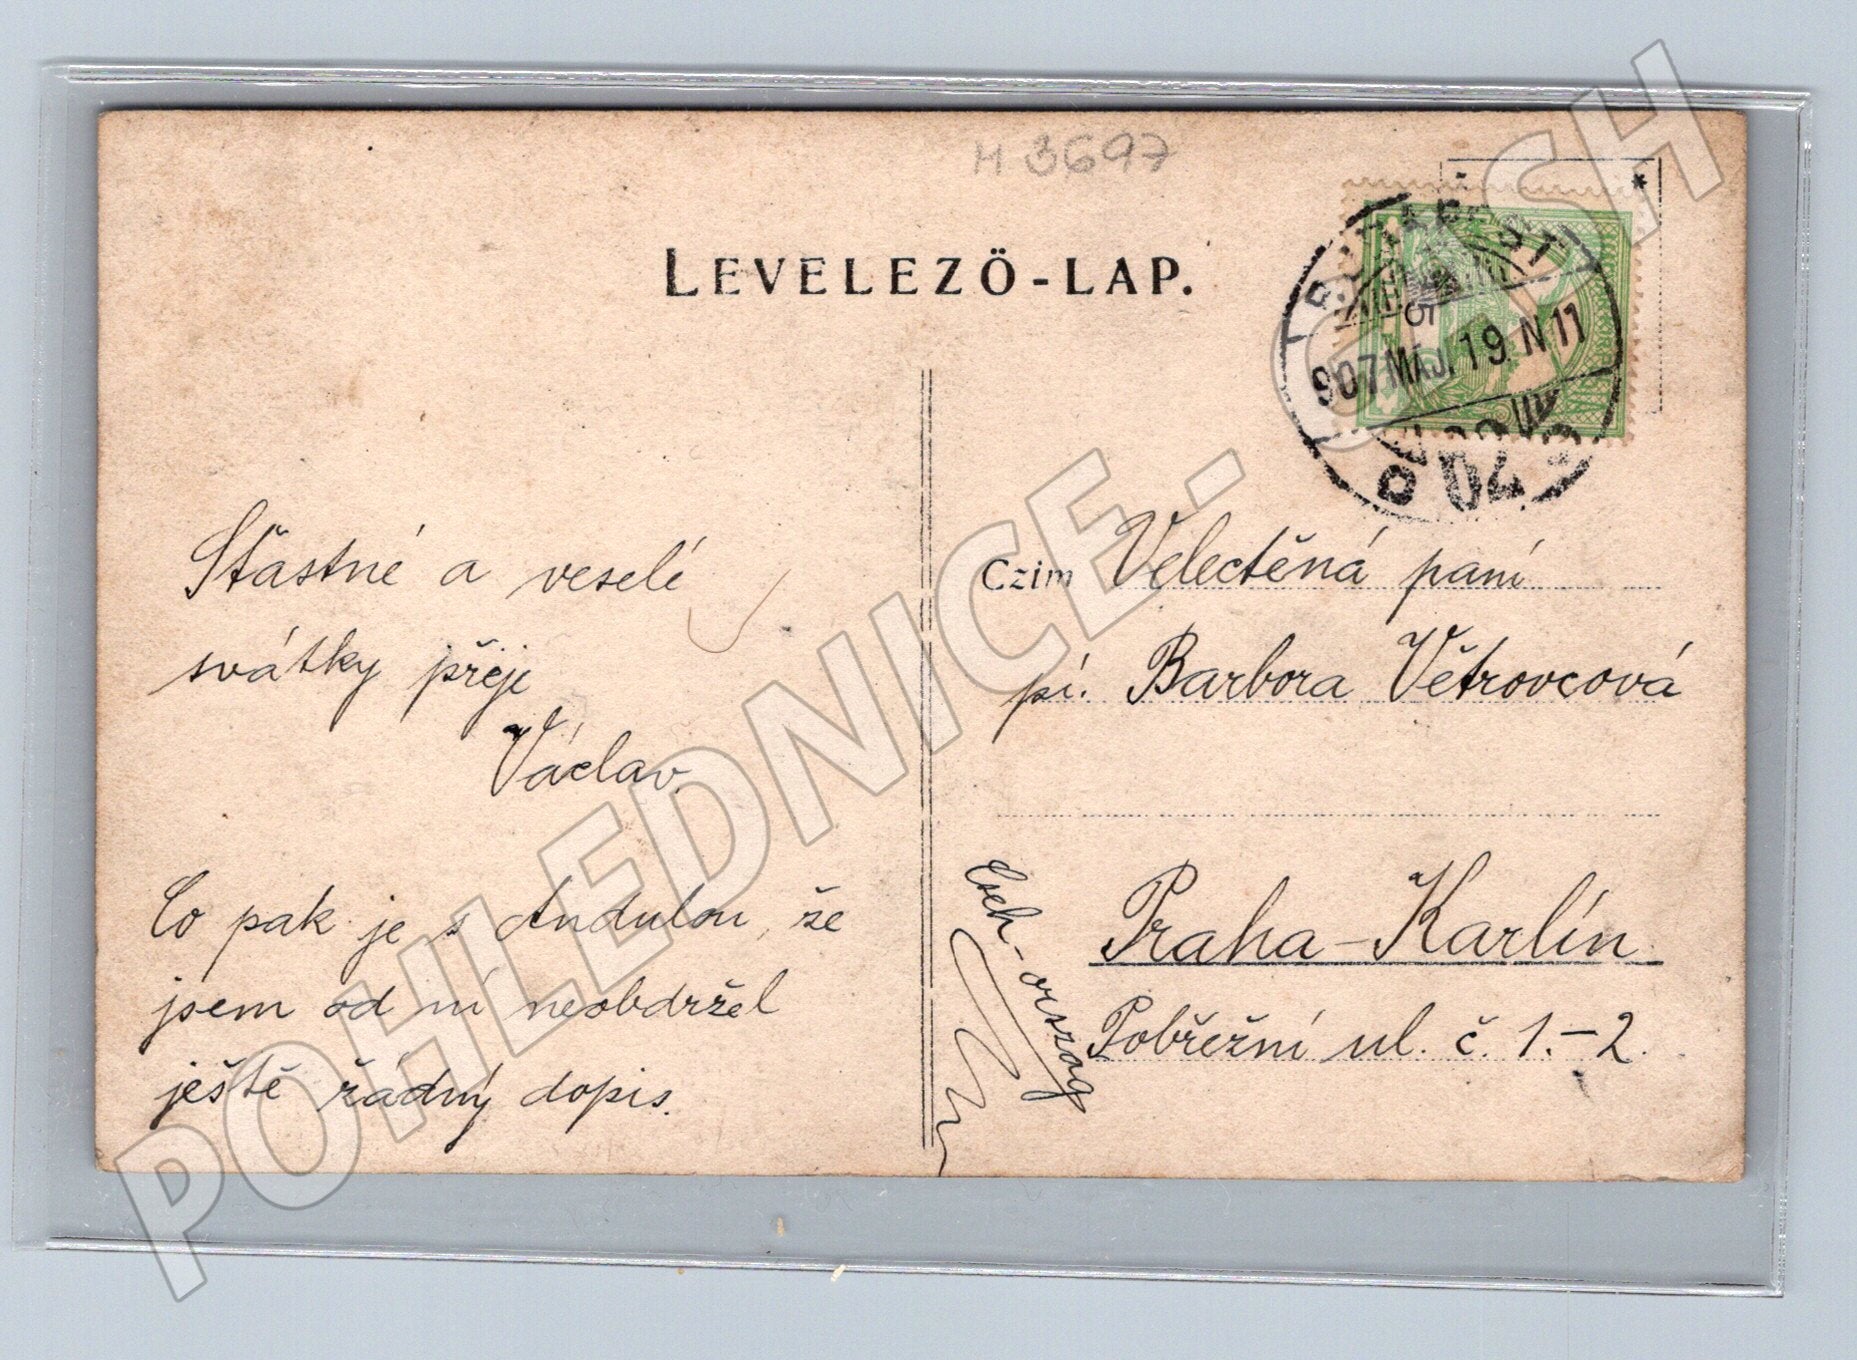 H 3697
LEVELEZŐ-LAP.
BUDAPEST
907 MÁJ. 19. N 11
D 04
Šťastné a veselé
svátky přeje
Václav.
Co pak je s Andulou, že
jsem od ní neobdržel
ještě řádný dopis.
Czim Velectěná paní
pí. Barbora Větrovcová
Praha-Karlín
Pobřežní ul. č. 1.-2.
Cseh-orszag
POHLEDNICE-
SH